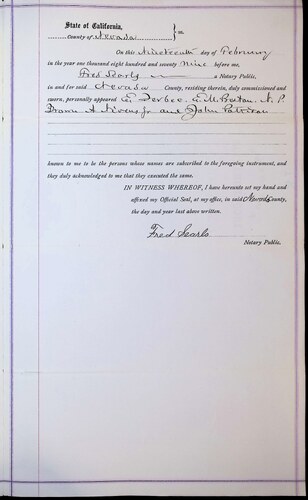 State of California,
County of Nevada } ss.
On this Nineteenth day of February
in the year one thousand eight hundred and seventy nine before me,
Fred Searls a Notary Public,
in and for said Nevada County, residing therein, duly commissioned and
sworn, personally appeared E. M. Preston. N. P.
Brown and John
known to me to be the persons whose names are subscribed to the foregoing instrument, and
they duly acknowledged to me that they executed the same.
IN WITNESS WHEREOF, I have hereunto set my hand and
affixed my Official Seal, at my office, in said Nevada County,
the day and year last above written.
Fred Searls
Notary Public.